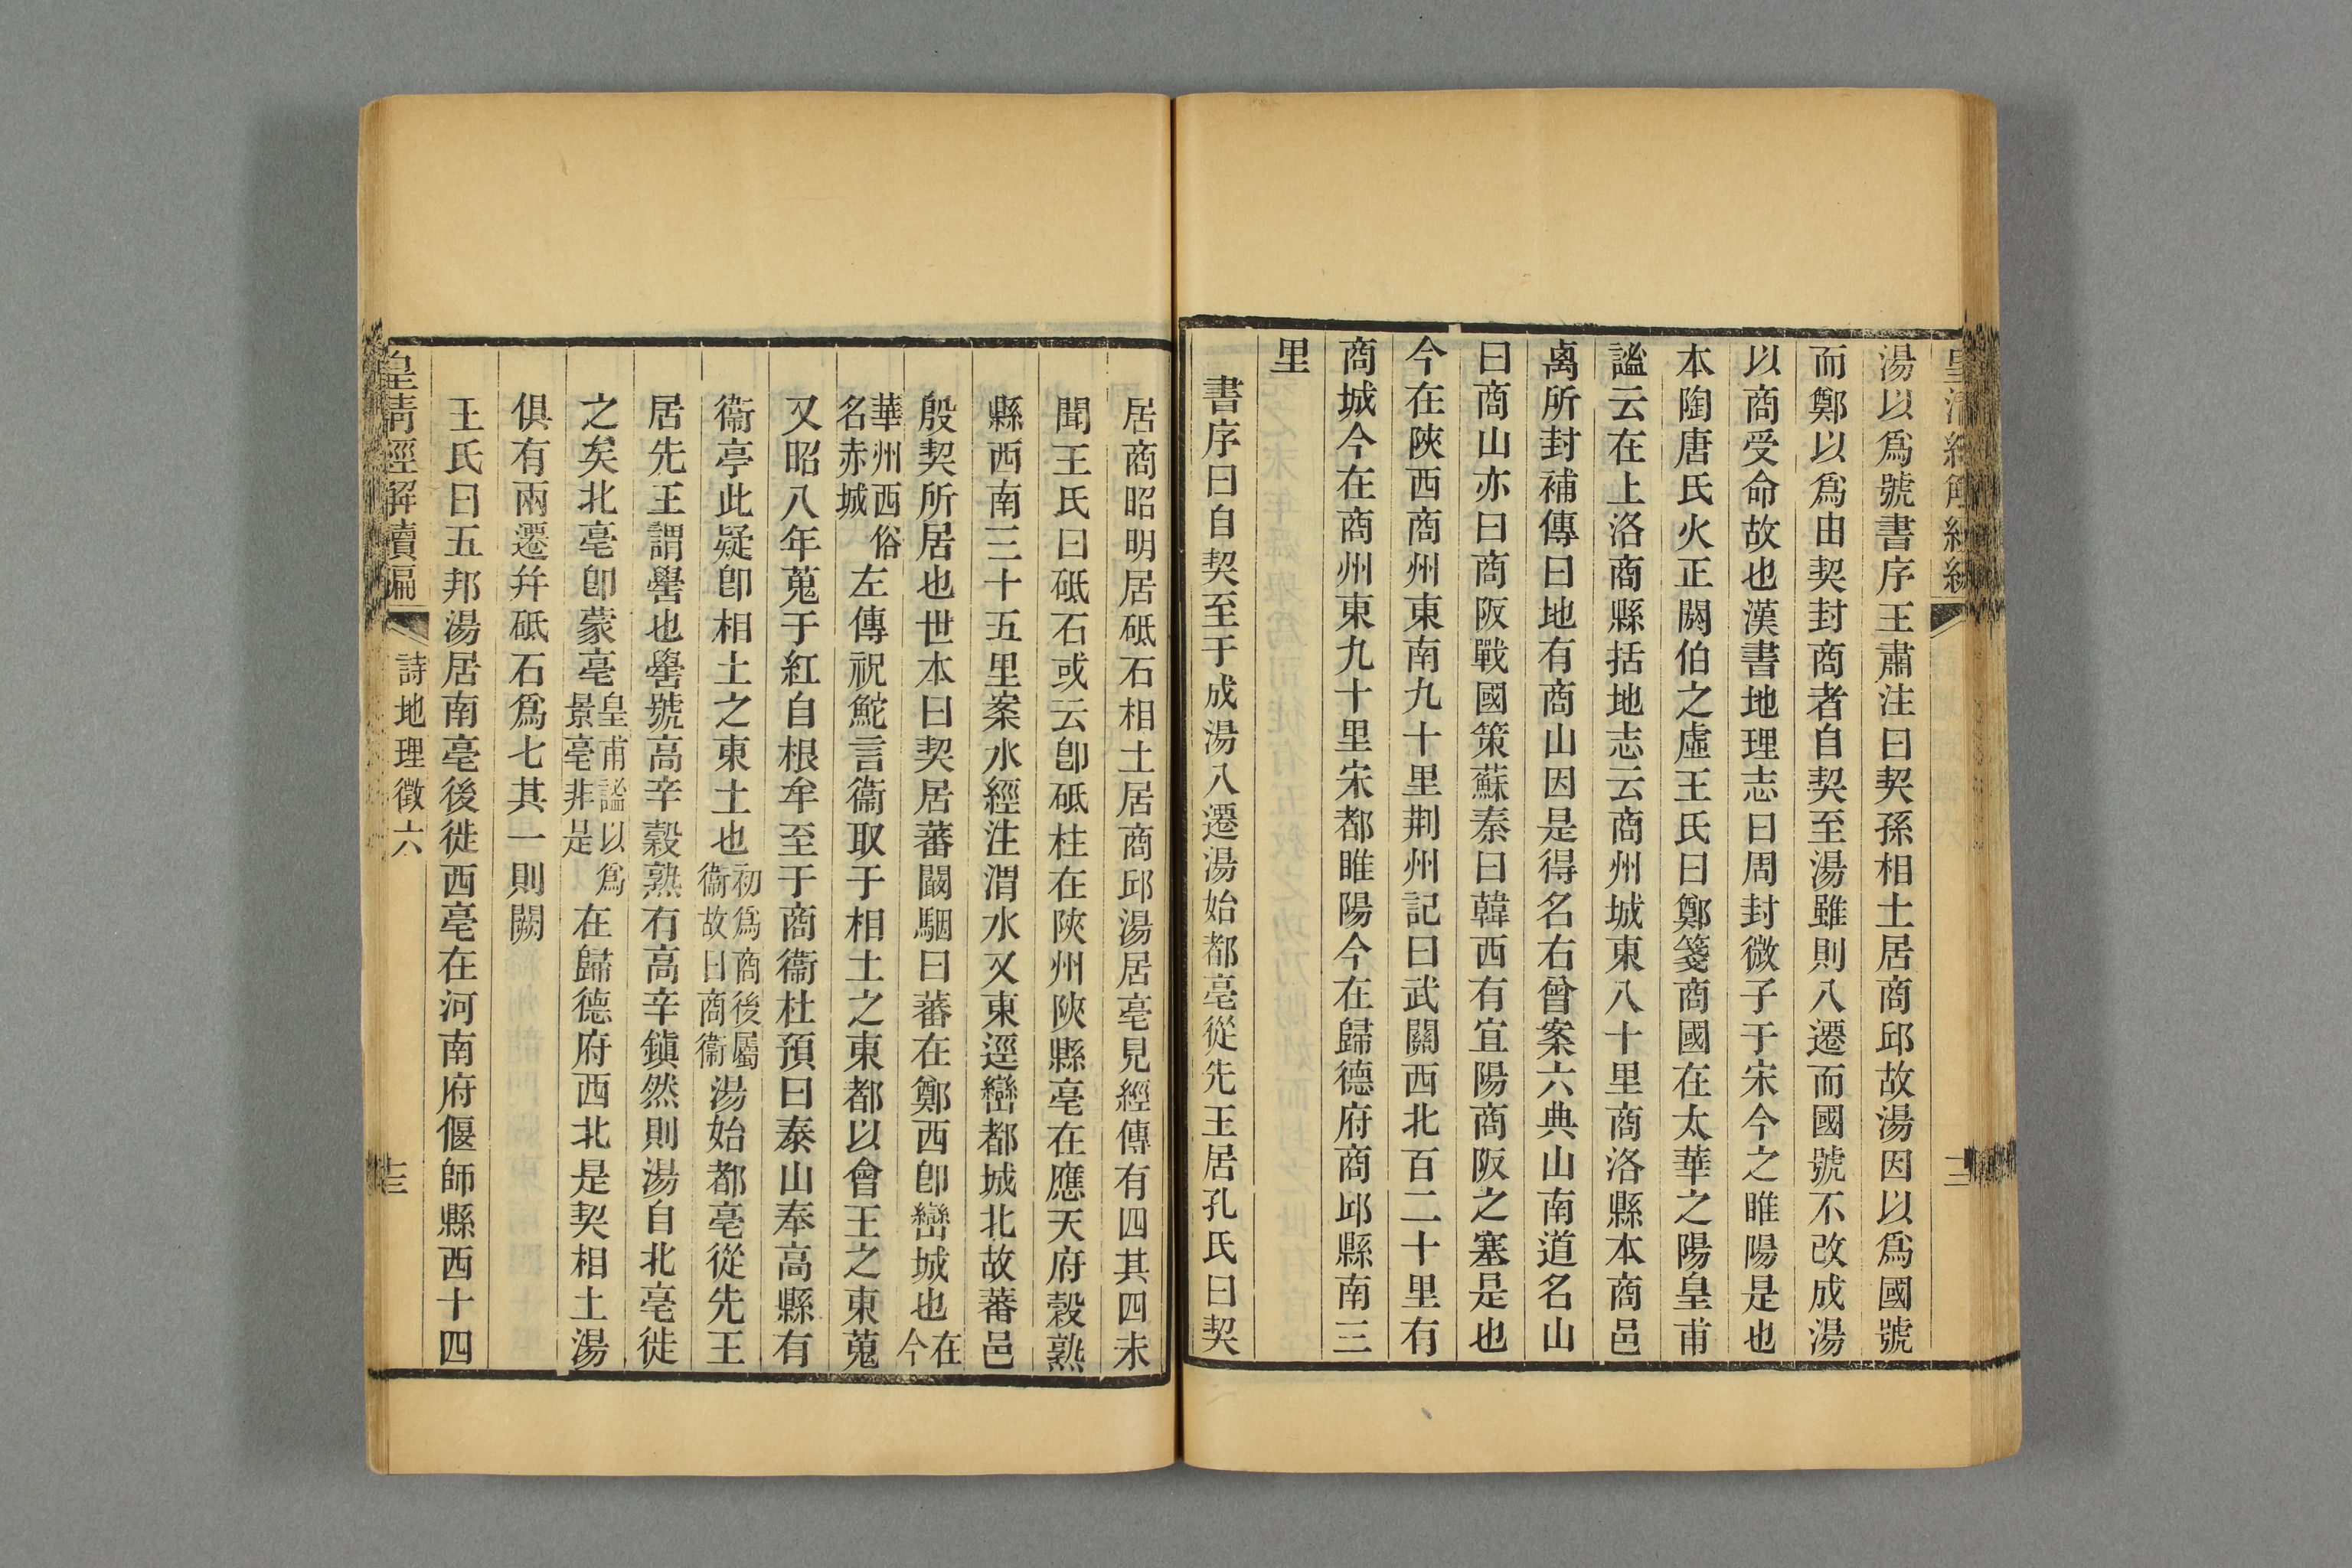 湯以爲號書序王肅注曰契孫相土居商邱故湯因以爲國號
而鄭以爲由契封商者自契至湯雖則八遷而國號不改成湯
以商受命故也漢書地理志曰周封微子于宋今之睢陽是也
本陶唐氏火正閼伯之虛王氏曰鄭箋商國在太華之陽皇甫
謐云在上洛商縣括地志云商州城東八十里商洛縣本商邑
离所封補傳曰地有商山因是得名右曾案六典山南道名山
曰商山亦曰商阪戰國策蘇秦曰韓西有宜陽商阪之塞是也
今在陝西商州東南九十里荆州記曰武關西北百二十里有
商城今在商州東九十里宋都睢陽今在歸德府商邱縣南三
里
書序曰自契至于成湯八遷湯始都亳從先王居孔氏曰契
居商昭明居砥石相土居商邱湯居亳見經傳有四其四未
聞王氏曰砥石或云卽砥柱在陝州陝縣亳在應天府穀熟
縣西南三十五里案水經注渭水又東逕巒都城北故蕃邑
殷契所居也世本曰契居蕃闞駰曰蕃在鄭西卽巒城也在今
華州西俗名赤城左傳祝鮀言衞取于相土之東都以會王之東蒐
又昭八年蒐于紅自根牟至于商衞杜預曰泰山奉高縣有
衞亭此疑卽相土之東土也初爲商後屬衞故曰商衞湯始都亳從先王
居先王謂嚳也嚳號高辛穀熟有高辛鎭然則湯自北亳徙
之矣北亳卽蒙亳皇甫謐以爲景亳非是在歸德府西北是契相土湯
俱有兩遷幷砥石爲七其一則闕
王氏曰五邦湯居南亳後徙西亳在河南府偃師縣西十四
皇清經解續編
詩地理徵六
十三